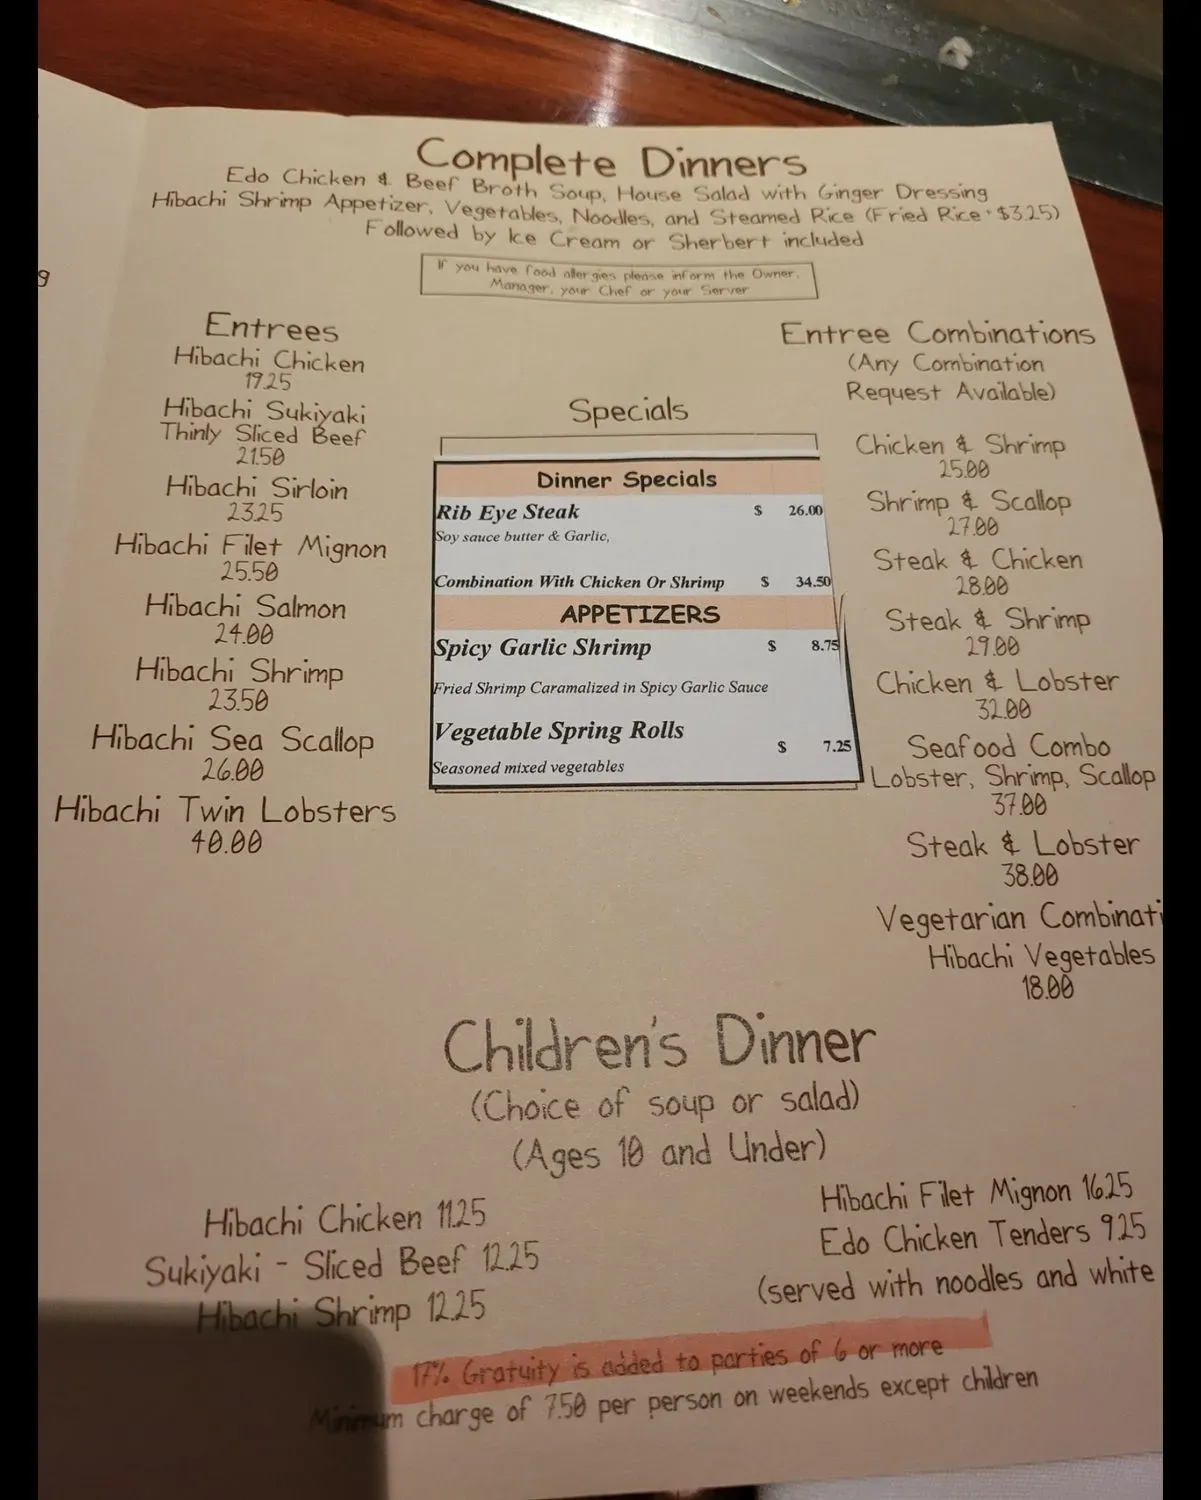 Complete Dinners
Edo Chicken & Beef Broth Soup, House Salad with Ginger Dressing
Hibachi Shrimp Appetizer, Vegetables, Noodles, and Steamed Rice (Fried Rice • $3.25)
Followed by Ice Cream or Sherbert included
If you have food allergies please inform the Owner,
Manager, your Chef or your Server
Entrees
Hibachi Chicken
19.25
Hibachi Sukiyaki
Thinly Sliced Beef
21.50
Hibachi Sirloin
23.25
Hibachi Filet Mignon
25.50
Hibachi Salmon
24.00
Hibachi Shrimp
23.50
Hibachi Sea Scallop
26.00
Hibachi Twin Lobsters
40.00
Specials
Dinner Specials
Rib Eye Steak $ 26.00
Soy sauce butter & Garlic,
Combination With Chicken Or Shrimp $ 34.50
APPETIZERS
Spicy Garlic Shrimp $ 8.75
Fried Shrimp Caramalized in Spicy Garlic Sauce
Vegetable Spring Rolls
$ 7.25
Seasoned mixed vegetables
Entree Combinations
(Any Combination
Request Available)
Chicken & Shrimp
25.00
Shrimp & Scallop
27.00
Steak & Chicken
28.00
Steak & Shrimp
29.00
Chicken & Lobster
32.00
Seafood Combo
Lobster, Shrimp, Scallop
37.00
Steak & Lobster
38.00
Vegetarian Combinati
Hibachi Vegetables
18.00
Children's Dinner
(Choice of soup or salad)
(Ages 10 and Under)
Hibachi Chicken 11.25
Sukiyaki - Sliced Beef 12.25
Hibachi Shrimp 12.25
Hibachi Filet Mignon 16.25
Edo Chicken Tenders 9.25
(served with noodles and white
17% Gratuity is added to parties of 6 or more
Minimum charge of 7.50 per person on weekends except children